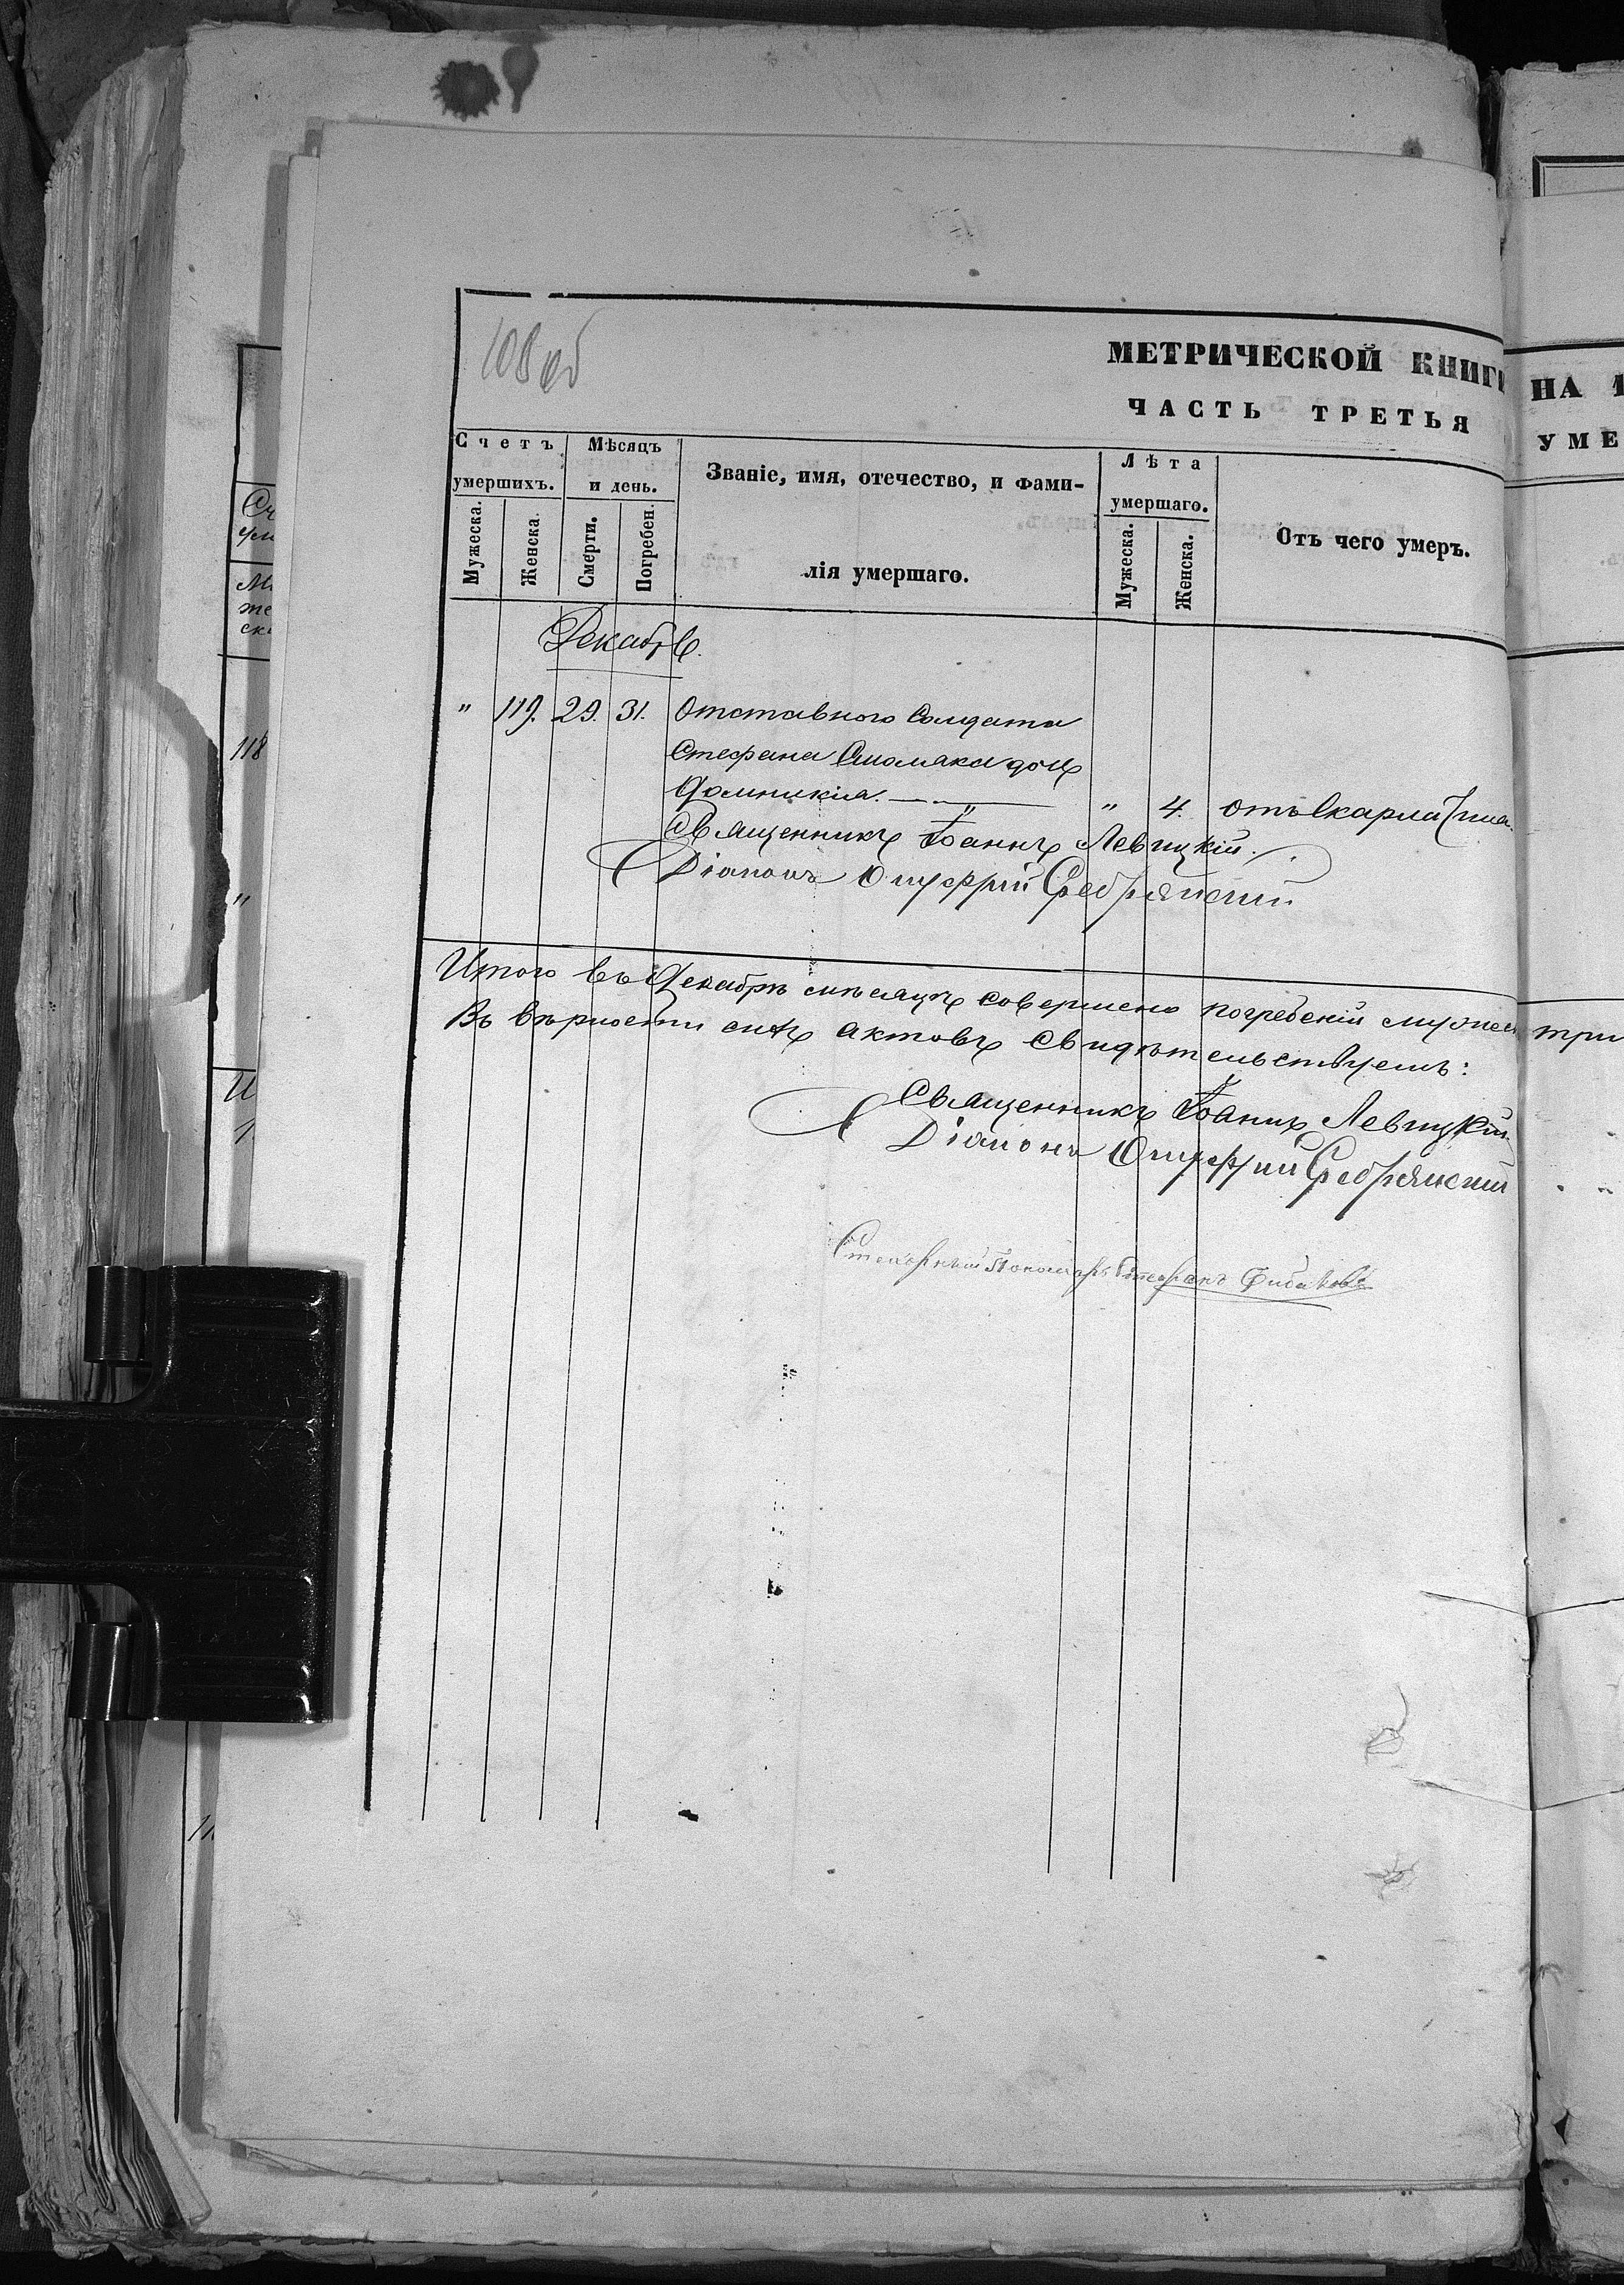 108 об
МЕТРИЧЕСКОЙ КНИГИ
НА 1
ЧАСТЬ ТРЕТЬЯ
УМЕ
Счетъ умершихъ.
Мѣсяцъ и день.
Званіе, имя, отечество, и фами-
лія умершаго.
Лѣта умершаго.
Отъ чего умеръ.
Мужеска.
Женска.
Смерти.
Погребен.
Мужеска.
Женска.
Декабрь.
" 119. 29. 31. Отставного Солдата
Стефана дочь
Домникія. — " — " 4. отъ скарлатина.
Священникъ Іоаннъ Левицкій.
Діаконъ Онуфрій
Итого въ Декабрѣ мѣсяцѣ совершено погребеній мужес три
Въ вѣрности сихъ актовъ свидѣтельствуемъ:
Священникъ Іоаннъ Левицкій
Діаконъ Онуфрій
Пономарь Стефанъ
118